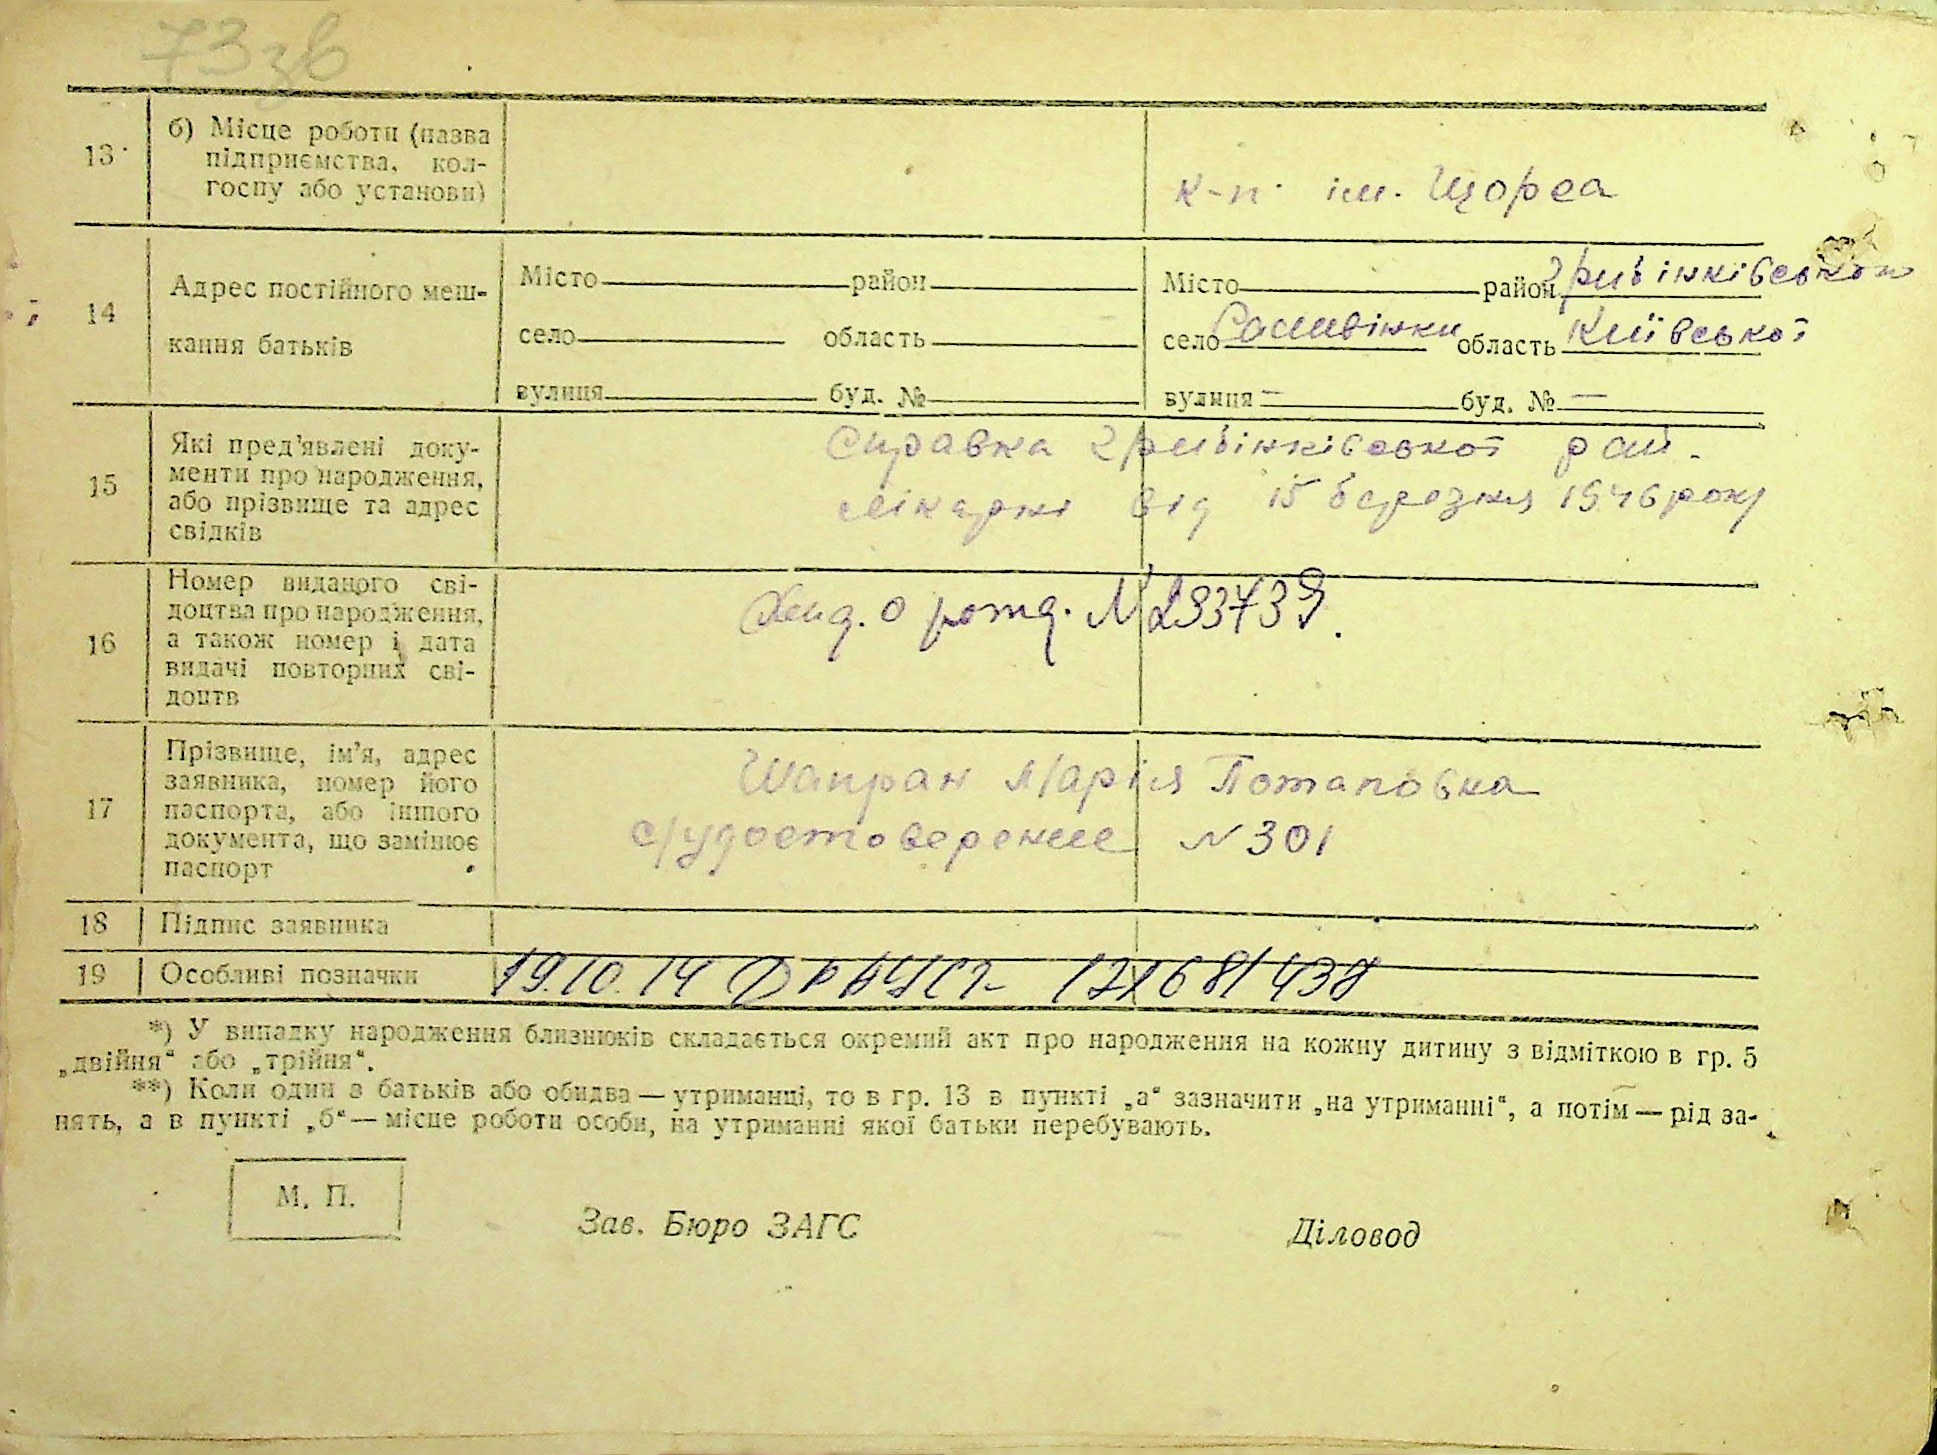 73 зв
13
б) Місце роботи (назва
підприємства, кол-
госпу або установи)
к-п. ім. Щорса
14
Адрес постійного меш-
кання батьків
Місто район
село область
вулиця буд. №
Місто район Гребінківського
село Саливінки область Київської
вулиця — буд. № —
15
Які пред'явлені доку-
менти про народження,
або прізвище та адрес
свідків
Справка Гребінківської рай.
лікарні від 15 березня 1946 року
16
Номер виданого сві-
доцтва про народження,
а також номер і дата
видачі повторних сві-
доцтв
о рожд. № 293739.
17
Прізвище, ім'я, адрес
заявника, номер його
паспорта, або іншого
документа, що замінює
паспорт
Шапран Марія Потаповна
удостоверение № 301
18
Підпис заявника
19
Особливі позначки
19.10.14 ДРАЦСГ
*) У випадку народження близнюків складається окремий акт про народження на кожну дитину з відміткою в гр. 5
„двійня“ або „трійня“.
**) Коли один з батьків або обидва — утриманці, то в гр. 13 в пункті „а“ зазначити „на утриманні“, а потім — рід за-
нять, а в пункті „б“ — місце роботи особи, на утриманні якої батьки перебувають.
М. П.
Зав. Бюро ЗАГС
Діловод